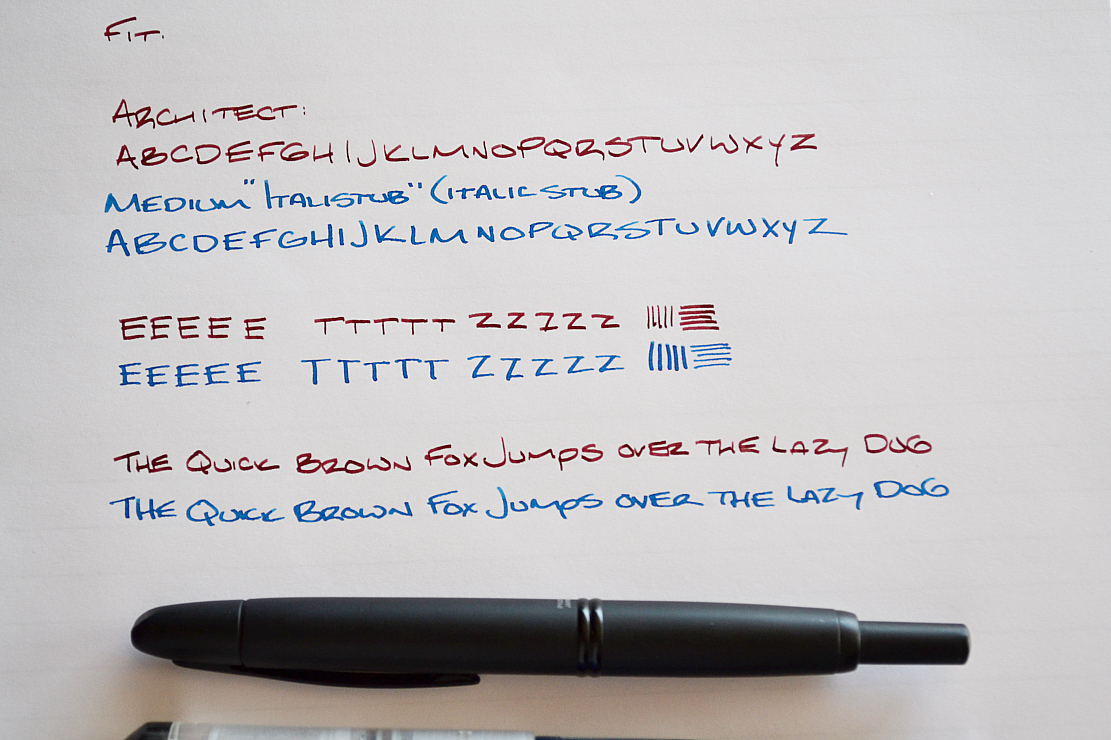 FIT.
ARCHITECT:
ABCDEFGHIJKLMNOPQRSTUVWXYZ
MEDIUM "ITALISTUB" (ITALIC STUB)
ABCDEFGHIJKLMNOPQRSTUVWXYZ
EEEEE TTTTT ZZZZZ
EEEEE TTTTT ZZZZZ
THE QUICK BROWN FOX JUMPS OVER THE LAZY DOG
THE QUICK BROWN FOX JUMPS OVER THE LAZY DOG